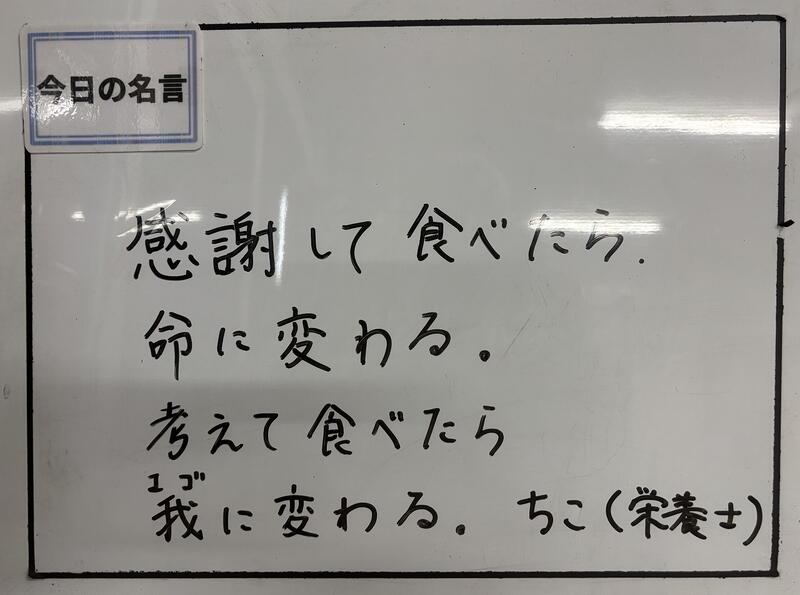 今日の名言
感謝して食べたら.
命に変わる。
考えて食べたら
エゴ
我に変わる。 ちこ(栄養士)